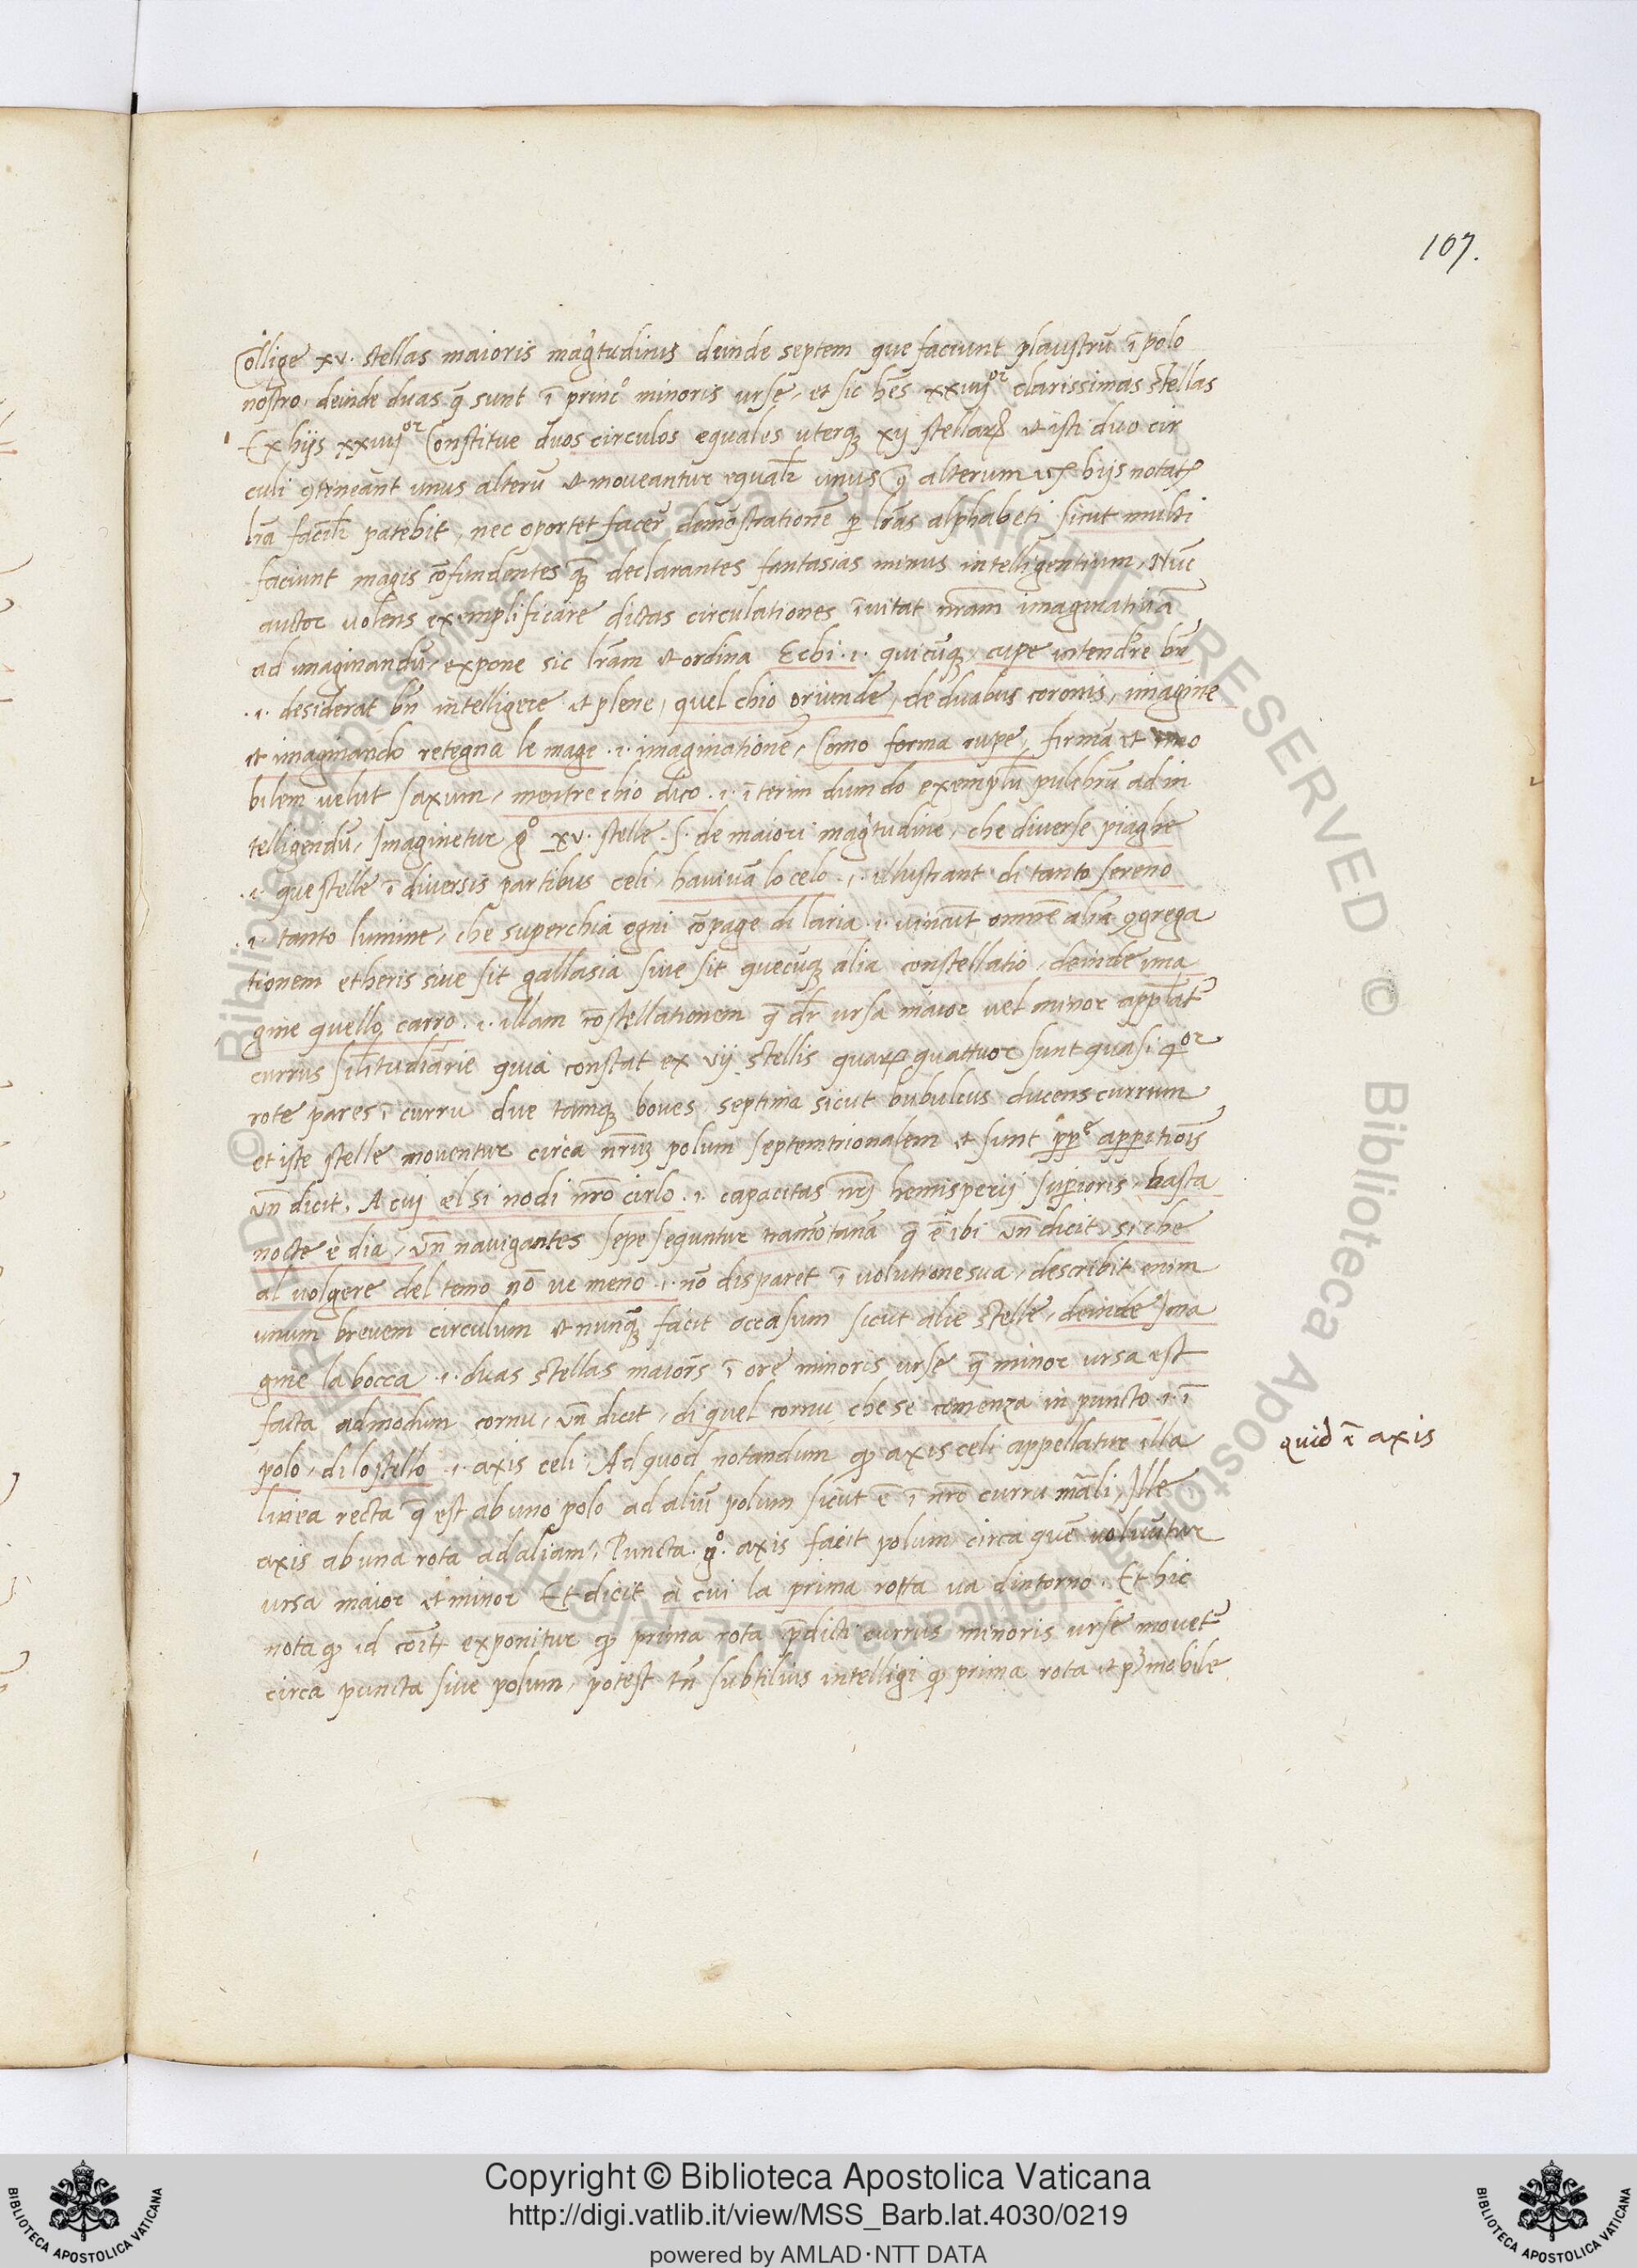 107.
Collige xv. stellas maioris mag̃tudinis deinde septem que faciunt plaustrũ ĩ polo
nostro, deinde duas q̃ sunt ĩ princº minoris urse, et sic hẽs xxiiijor clarissimas stellas
Ex hijs xxiiijor Constitue duos circulos equales uterqʒ xij stellaꝝ et isti duo cir
culi ꝯtineant unus alterũ et moveantur equalr̃ unus ꝯ̃ alterum et hijs notatꝭ
lr̃a facilr̃ patebit, nec oportet facer̃ demõstrationẽ ꝑ lr̃as alphabeti sicut multi
faciunt magis cõfundentes qʒ̃ declarantes fantasias minus intelligentium, Nũc
auctor volens exemplificare dictas circulationes ĩvitat nr̃am imaginativã
ad imaginandũ, expone sic lr̃am et ordina Echi .i. quicũqʒ, cupe intendre bñ
.i. desiderat bñ intelligere et plene, quel chio orivide, de duabus coronis, imagine
et imaginando retegna le mage .i. imaginationẽ, Como forma rupe, firmã et imo
bilem velut saxum, mentre chio dico .i. ĩterim dum do exemplũ pulchrũ ad in
telligendũ, Imaginetur gº xv. stelle .s. de maiori mag̃tudine, che diverse piaghe
.i. que stelle ĩ diversis partibus celi, havivã lo celo .i. illustrant di tanto sereno
.i. tanto lumine, che superchia ogni cõpage di laria .i. vincũt omnẽ aliã ꝯgrega
tionem etheris sive sit gallasia sive sit quecũqʒ alia constellatio, deinde ima
gine quello carro .i. illam cõstellationem q̃ dr̃ ursa maior vel minor applat̃
currus silitudiarie quia constat ex vij stellis quaꝝ quattuor sunt quasi qor
rote pares ĩ curru due tamqʒ boves septima sicut bubulcus ducens currum
et iste stelle moventur circa nr̃uʒ polum septemtrionalem et sunt ꝑpe apparitiõis
Vñ dicit, A cuj el si nodi nr̃o cirlo .i. capacitas nrj hemisperij suꝑioris, basta
nocte è dia, Vñ navigantes sepe sequntur tramõtanã q̃ ẽ ibi Vñ dicit, si che
al volgere del temo nõ ve meno .i. nõ disparet ĩ volutione sua, describit enim
unum brevem circulum et nunqʒ̃ facit occasum sicut alie stelle, deinde Ima
gine la bocca .i. duas stellas maiors̃ ĩ ore minoris urse q̃ minor ursa est
facta admodum cornu, Vñ dicit, di quel cornu che se comenza in puncto .i. ĩ
polo, di lo stello .i. axis celi, Ad quod notandum ꝙ axis celi appellatur illa
linea recta q̃ est ab uno polo ad aliũ polum sicut ẽ ĩ nr̃o curru mãli, Ille
quid ẽ axis
axis ab una rota ad aliam, Puncta .gº. axis facit polum circa quẽ volvũtur
ursa maior et minor Et dicit à cui la prima rotta va dintorno. Et hic
nota ꝙ id cõitr exponitur ꝙ prima rota p̃dicti currus minoris urse movet̃
circa puncta sive polum, potest tñ subtilius intelligi ꝙ prima rota et pʳ mobile
© Biblioteca Apostolica Vaticana ALL RIGHTS RESERVED
Copyright © Biblioteca Apostolica Vaticana
http://digi.vatlib.it/view/MSS_Barb.lat.4030/0219
powered by AMLAD·NTT DATA
BIBLIOTECA APOSTOLICA VATICANA
BIBLIOTECA APOSTOLICA VATICANA